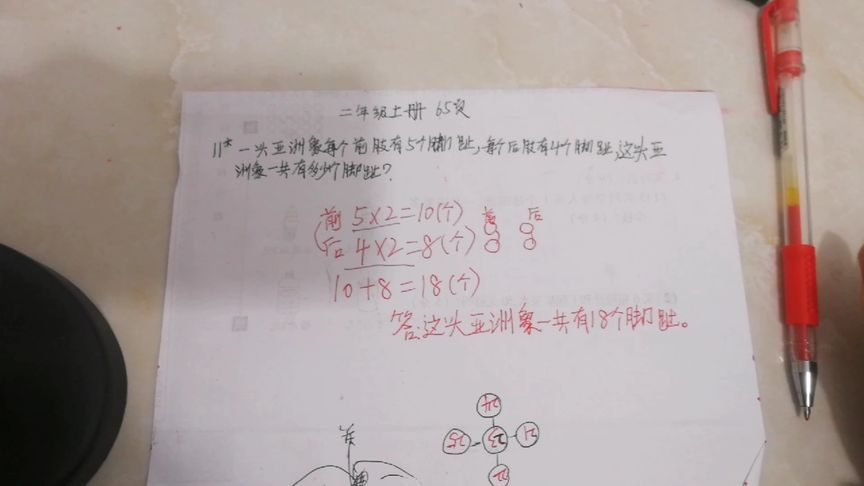 二年级上册 65页
11* 一头亚洲象每个前肢有5个脚趾,每个后肢有4个脚趾,这头亚
洲象一共有多少个脚趾?
前 5×2=10(个) 前 后
后 4×2=8(个)
10+8=18(个)
答:这头亚洲象一共有18个脚趾。
24
25 23 21
22